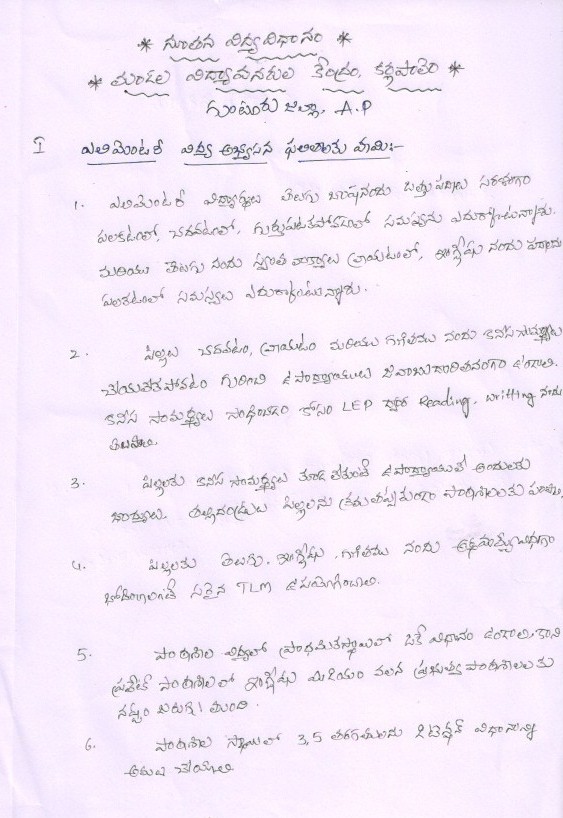 * నూతన విద్యావిధానం *
* మండల విద్యావనరుల కేంద్రం, కర్లపాలెం *
గుంటూరు జిల్లా, A.P
I ఎలిమెంటరీ విద్య అభ్యసన ఫలితాలు
1. ఎలిమెంటరీ విద్యార్థులు తెలుగు భాషనందు ఒత్తు పదాలు సరళంగా
పలకటంలో, చదవటంలో, గుర్తుపట్టకపోవటంలో సమస్యను ఎదుర్కొంటున్నారు.
మరియు తెలుగు నందు స్వంత వాక్యాలు వ్రాయటంలో, ఇంగ్లీషు నందు కూడా
పలకటంలో సమస్యలు ఎదుర్కొంటున్నారు.
2. పిల్లలు చదవటం, వ్రాయటం మరియు గణితము నందు కనీస సామర్థ్యాలు
చేయలేకపోవటం గురించి ఉపాధ్యాయులు జవాబుదారితనంగా ఉండాలి.
కనీస సామర్థ్యాలు సాధించటం కోసం LEP ద్వారా Reading, writting నందు
3. పిల్లలకు కనీస సామర్థ్యాలు ఉపాధ్యాయులతో అందులకు
బాధ్యులు. తల్లిదండ్రులు పిల్లలను క్రమంతప్పకుండా పాఠశాలలకు
4. పిల్లలకు తెలుగు, ఇంగ్లీషు, గణితము నందు
బోధించాలంటే సరైన TLM ఉపయోగించాలి.
5. పాఠశాల విద్యలో ప్రాథమికస్థాయిలో ఒకే విధానం ఉండాలి. కాని
ప్రైవేట్ పాఠశాలలో ఇంగ్లీషు మీడియం వలన ప్రభుత్వ పాఠశాలలకు
నష్టం జరుగుతుంది.
6. పాఠశాల స్థాయిలో 3,5 తరగతులకు డిటెన్షన్ విధానాన్ని
అమలు చేయాలి.